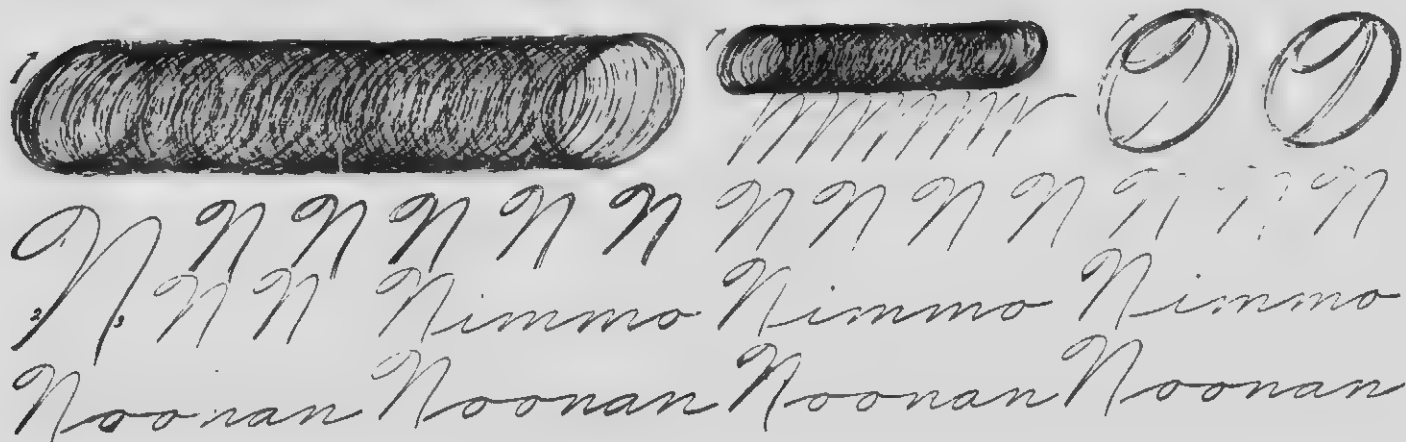 1
N N N N N N N N N N N N N
2 3 N N Nimmo Nimmo Nimmo
Noonan Noonan Noonan Noonan